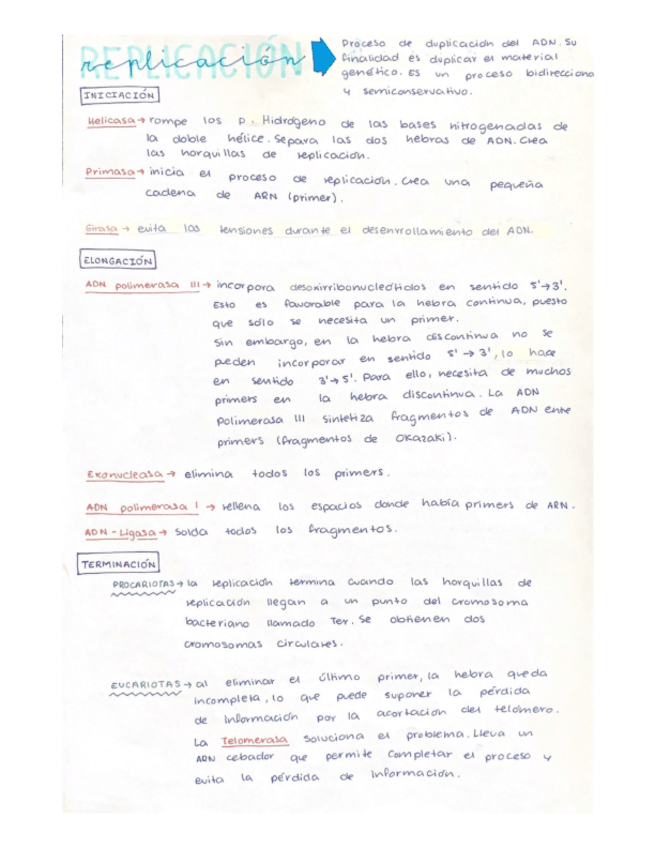 REPLICACIÓN
replicación
Proceso de duplicación del ADN. Su
finalidad es duplicar el material
genético. Es un proceso bidirecciona
y semiconservativo.
INICIACIÓN
Helicasa → rompe los p. Hidrógeno de las bases nitrogenadas de
la doble hélice. Separa las dos hebras de ADN. Crea
las horquillas de replicación.
Primasa → inicia el proceso de replicación. Crea una pequeña
cadena de ARN (primer).
Girasa → evita las tensiones durante el desenrrollamiento del ADN.
ELONGACIÓN
ADN polimerasa III → incorpora desoxirribonucleótidos en sentido 5'→3'.
Esto es favorable para la hebra continua, puesto
que sólo se necesita un primer.
Sin embargo, en la hebra discontinua no se
pueden incorporar en sentido 5'→3', lo hace
en sentido 3'→5'. Para ello, necesita de muchos
primers en la hebra discontinua. La ADN
polimerasa III sintetiza fragmentos de ADN entre
primers (fragmentos de Okazaki).
Exonucleasa → elimina todos los primers.
ADN polimerasa I → rellena los espacios donde había primers de ARN.
ADN-Ligasa → Solda todos los fragmentos.
TERMINACIÓN
PROCARIOTAS → la replicación termina cuando las horquillas de
replicación llegan a un punto del cromosoma
bacteriano llamado Ter. Se obtienen dos
cromosomas circulares.
EUCARIOTAS → al eliminar el último primer, la hebra queda
incompleta, lo que puede suponer la pérdida
de información por la acortación del telómero.
La Telomerasa soluciona el problema. Lleva un
ARN cebador que permite completar el proceso y
evita la pérdida de información.